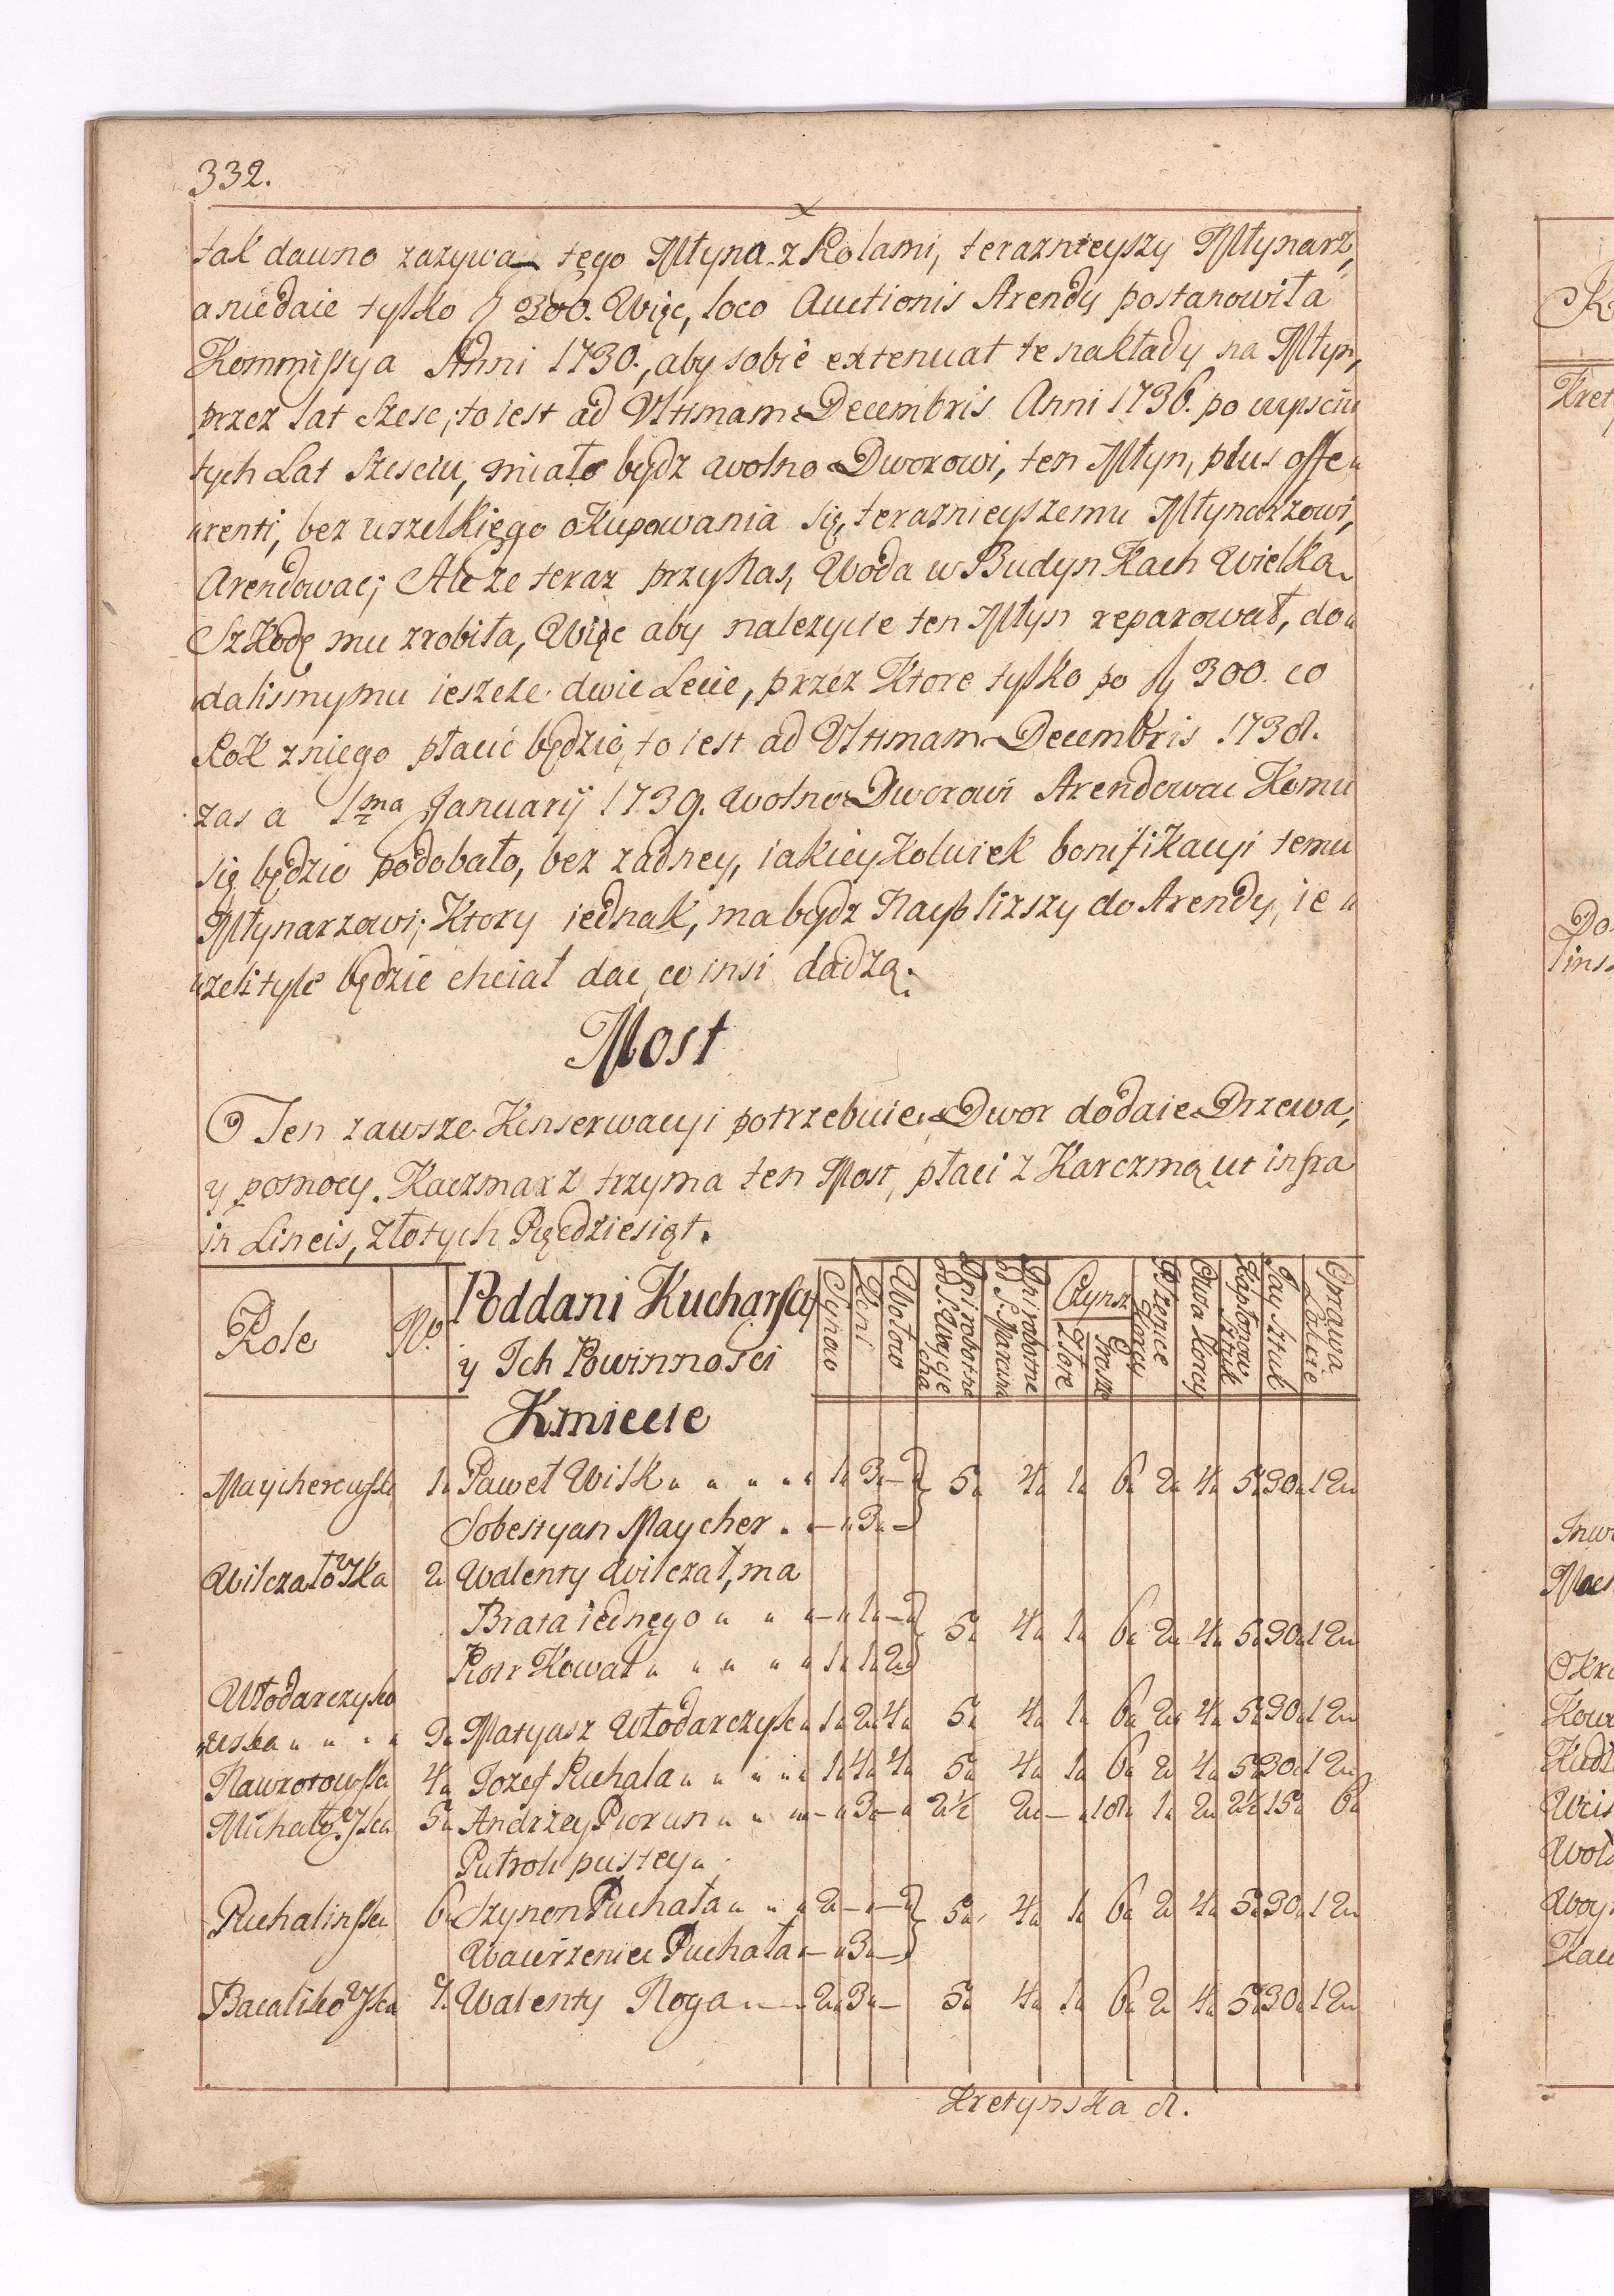 332.
tak dawno zazywa tego Młyna z Rolami, teraznieyszy Młynarz,
a niedaie tylko fl 300. Więc, loco Auctionis Arendy postanowiła
Kommissya Anni 1730., aby sobie extenuat te nakłady na Młyn,
przez lat Szesc, to iest ad Ultimam Decembris Anni 1736. po wyisciu
tych Lat Szesciu, miało bydz wolno Dworowi, ten Młyn, plus offe„
„renti, bez wszelkiego okupowania się, teraznieyszemu Młynarzowi,
Arendowac; Ale ze teraz przy Nas, Woda w Budynkach Wielka
Szkodę mu zrobiła, Więc aby nalezycie ten Młyn reparował, do„
„dalismy mu ieszcze dwie Lecie, przez Ktore tylko po fl 300. co
Rok zniego płacic będzie, to iest ad Ultimam Decembris 1738.
zas a 1ma January 1739. wolno Dworowi Arendowac Komu
się będzie podobało, bez zadney, iakieykolwiek bonifikacyi temu
Młynarzowi; Ktory iednak, ma bydz Nayblizszy do Arendy, ie„
„zeli tyle będzie chciał dac, co insi dadzą.
Most
Ten zawsze Konserwacyi potrzebuie, Dwor dodaie Drzewa,
y pomocy. Kaczmarz trzyma ten Most, płaci z Karczmą ut infra
in Lineis, Złotych Pięcdziesiąt.
Role No. Poddani Kucharscy y Ich Powinnosci Synow Koni Wołow Dni robotne od S. Woyciecha Dni robotne od S. Marcina Czynsz Złote Grosze Pszenice Korcy Owsa Korcy Kapłonow Sztuk Jay Sztuk Oprawa Łokcie
Kmiecie
Maycherowska 1 Paweł Wilk „ „ „ „ „ 1 3 – 5 4 1 6 2 4 5 30 12
Sobestyan Maycher – 3 –
Wilczałowska 2 Walenty Wilczał, ma
Brata iednego „ „ „ – 1 – 5 4 1 6 2 4 5 30 12
Piotr Kowal „ „ „ „ „ 1 1 2
Włodarczyko
wska „ „ „ „ 3 Matyasz Włodarczyk 1 2 4 5 4 1 6 2 4 5 30 12
Nawrotowska 4 Jozef Puchala „ „ „ „ 1 4 4 5 4 1 6 2 4 5 30 12
Michałowska 5 Andrzey Piorun „ „ „ – 3 – 2½ 2 – 18 1 2 2½ 15 6
Puł roli pustey
Puchalinska 6 Szymon Puchała „ „ „ 2 – – 5 4 1 6 2 4 5 30 12
Wawrzeniec Puchała – 3 –
Bacalikowska 7 Walenty Noga 2 3 – 5 4 1 6 2 4 5 30 12
Kretynska 8.